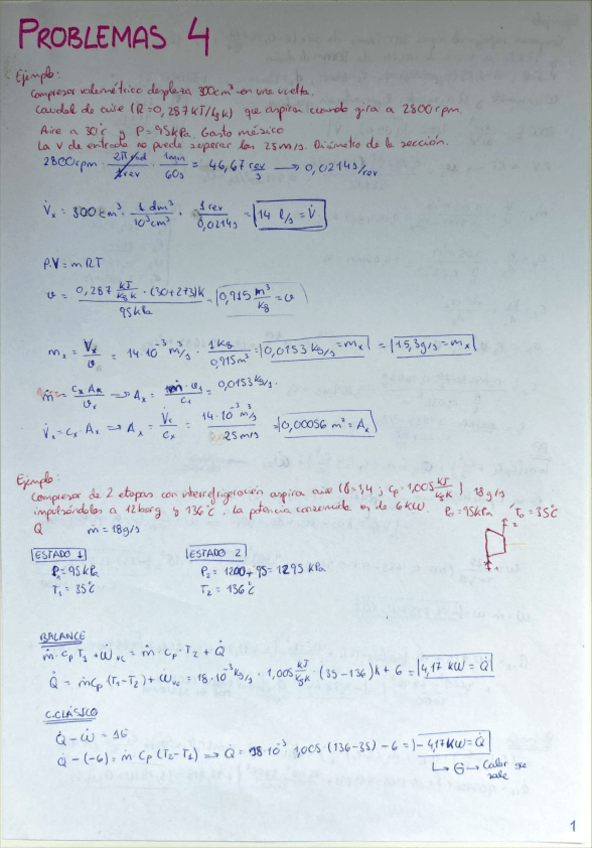 PROBLEMAS 4
Ejemplo:
Compresor volumétrico desplaza 300cm³ en una vuelta.
Caudal de aire (R=0,287 kJ/kgK) que aspira cuando gira a 2800rpm.
Aire a 30°C y P=95kPa. Gasto másico
La V de entrada no puede superar los 25m/s. Diámetro de la sección.
2800rpm · 2π rad/1rev · 1min/60s = 46,67 rev/s → 0,0214s/rev
V̇x = 300cm³ · 1 dm³/10³cm³ · 1 rev/0,0214s = 14 l/s = V̇
P.V = mRT
v = 0,287 kJ/kgK · (30+273)K / 95kPa = 0,915 m³/kg = v
mx = V̇x/v = 14·10⁻³ m³/s · 1kg/0,915m³ = 0,0153 kg/s = mx = 15,3g/s = mx
ṁ = cx Ax/vx → Ax = ṁ·v1/c1 = 0,0153kg/s ·
V̇x = cx · Ax → Ax = V̇x/cx = 14·10⁻³ m³/s / 25m/s = 0,00056 m² = Ax
Ejemplo:
Compresor de 2 etapas con interrefrigeración aspira aire (γ=1,4; Cp=1,005 kJ/kgK) 18g/s
impulsándolos a 12barg y 136°C. La potencia consumida es de 6KW. P1=95kPa T1=35°C
Q ṁ=18g/s
ESTADO 1 ESTADO 2
P1=95kPa P2=1200+95=1295 kPa
T1=35°C T2=136°C
BALANCE
ṁ·cp T1 + Ẇvc = ṁ·cp·T2 + Q̇
Q̇ = ṁcp (T1-T2) + Ẇvc = 18·10⁻³kg/s · 1,005 kJ/kgK · (35-136)K + 6 = 4,17 KW = Q̇
C.CLÁSICO
Q̇ - (-6) = ṁ cp (T2-T1) → Q̇ = 18·10⁻³ 1,005 · (136-35) - 6 = -4,17KW = Q̇
↳ ⊖ → Calor que
sale
1